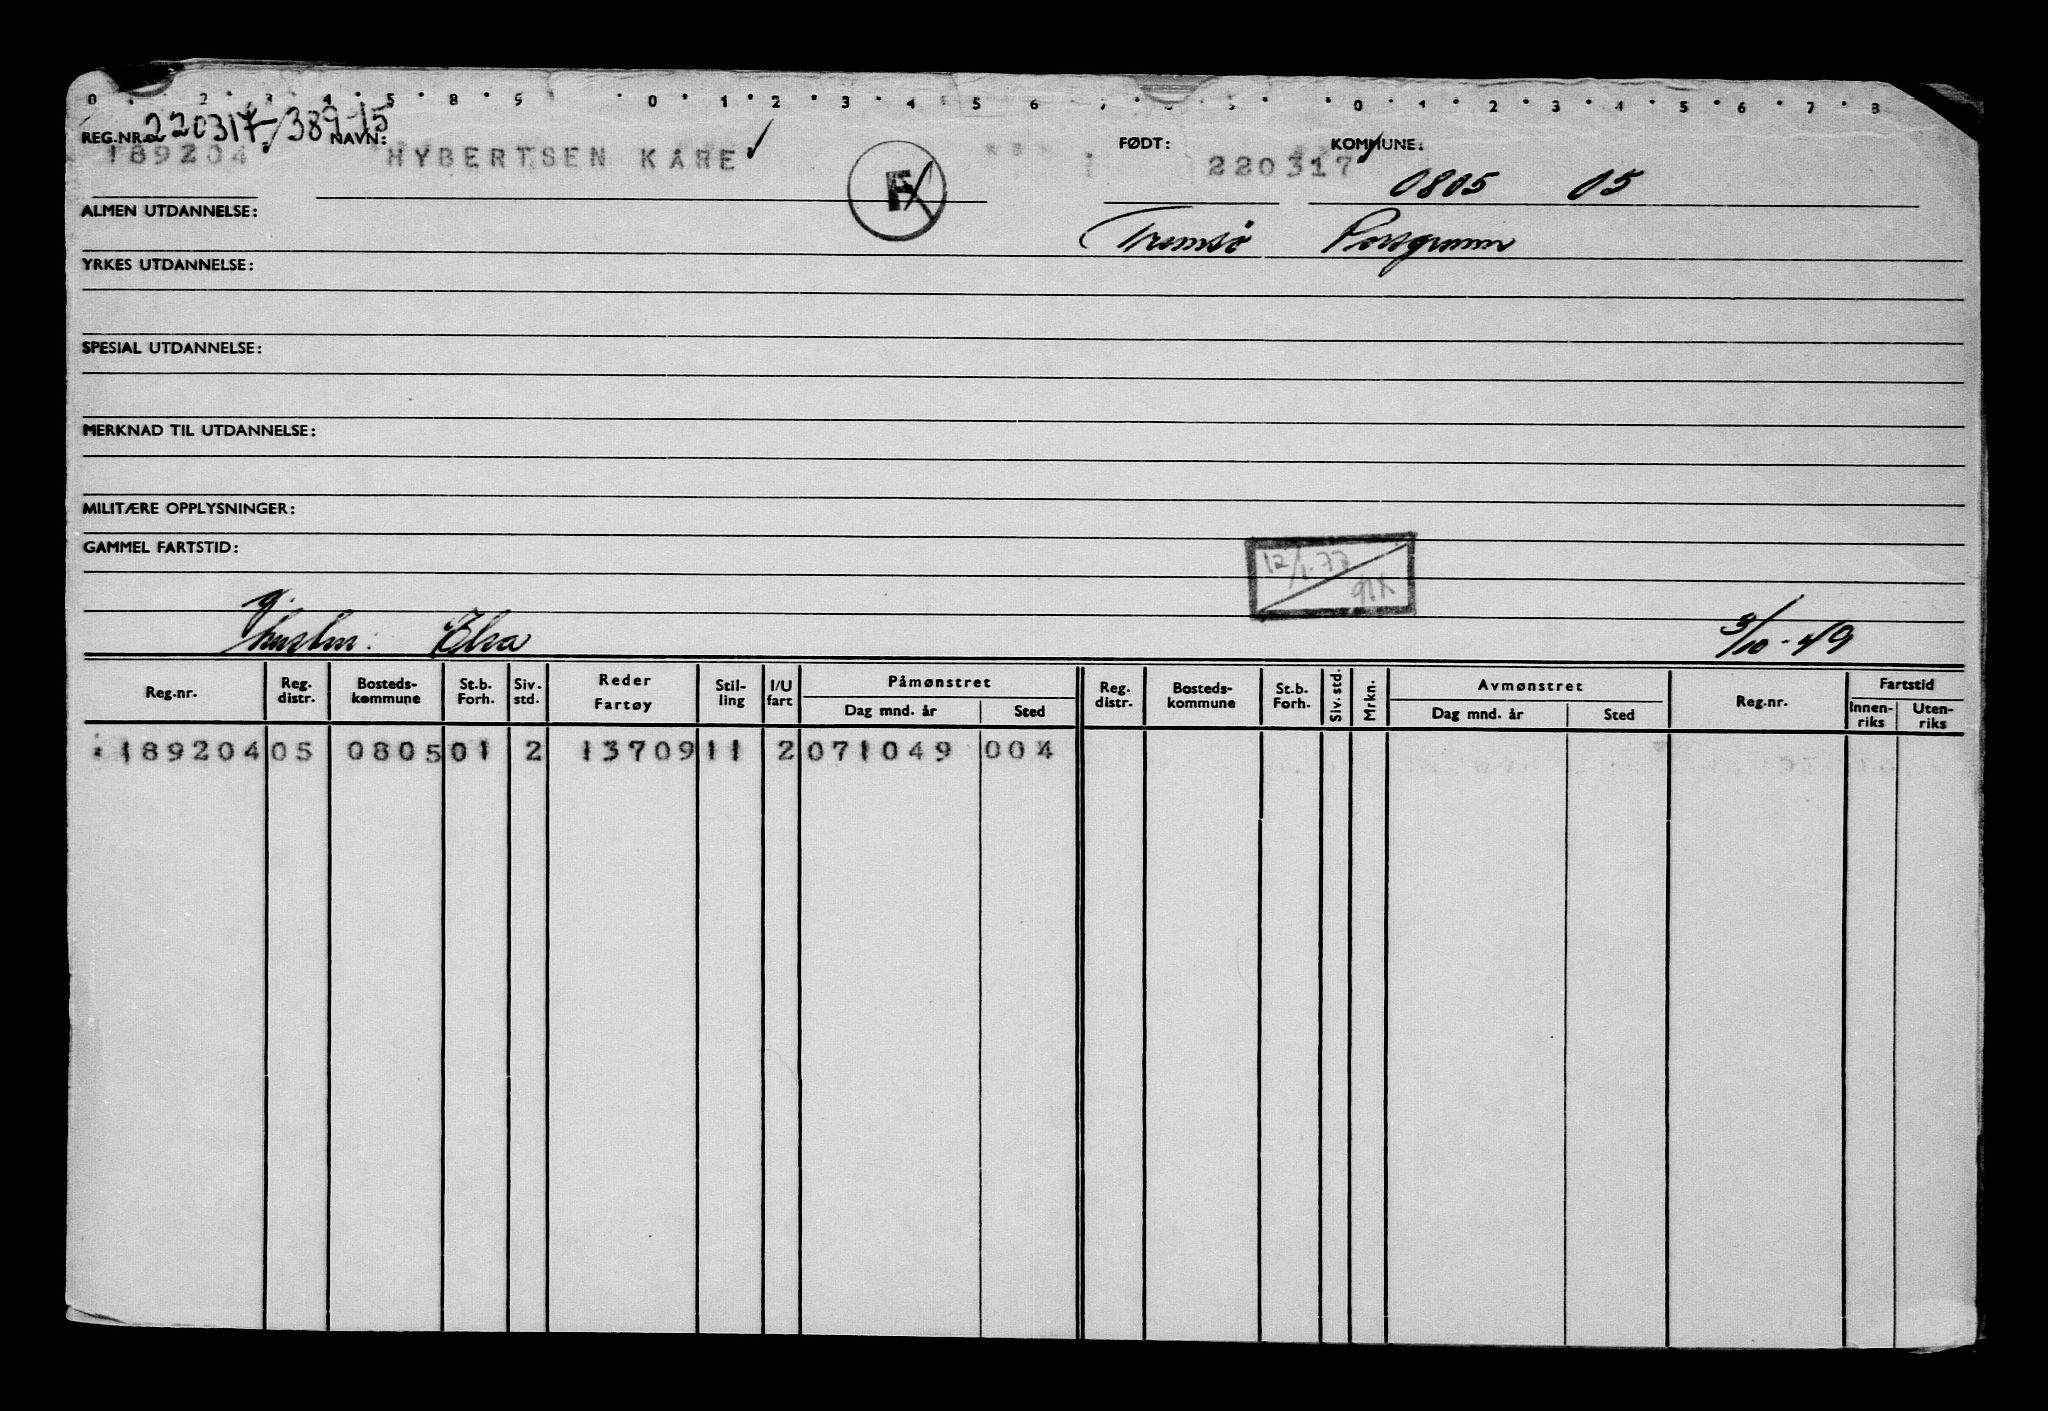 0 2 3 4 5 8 9 0 1 2 3 4 5 6 7 8 9 0 1 2 3 4 5 6 7 8
220317-/389-15
REG.NR. NAVN: FØDT: KOMMUNE:
189204 HYBERTSEN KARE 220317 0805 05
F
ALMEN UTDANNELSE: Tromsø Porsgrunn
YRKES UTDANNELSE:
SPESIAL UTDANNELSE:
MERKNAD TIL UTDANNELSE:
MILITÆRE OPPLYSNINGER:
GAMMEL FARTSTID:
12/1.77
g.
hustru: Elsa 3/10-49
Reg.nr. Reg. distr. Bosteds-kommune St.b. Forh. Siv. std. Reder Fartøy Stil-ling I/U fart Påmønstret Dag mnd. år Sted Reg. distr. Bosteds-kommune St.b. Forh. Siv. std. Mrkn. Avmønstret Dag mnd. år Sted Reg.nr. Fartstid Innen-riks Uten-riks
189204 05 0805 01 2 13709 11 2 071049 004